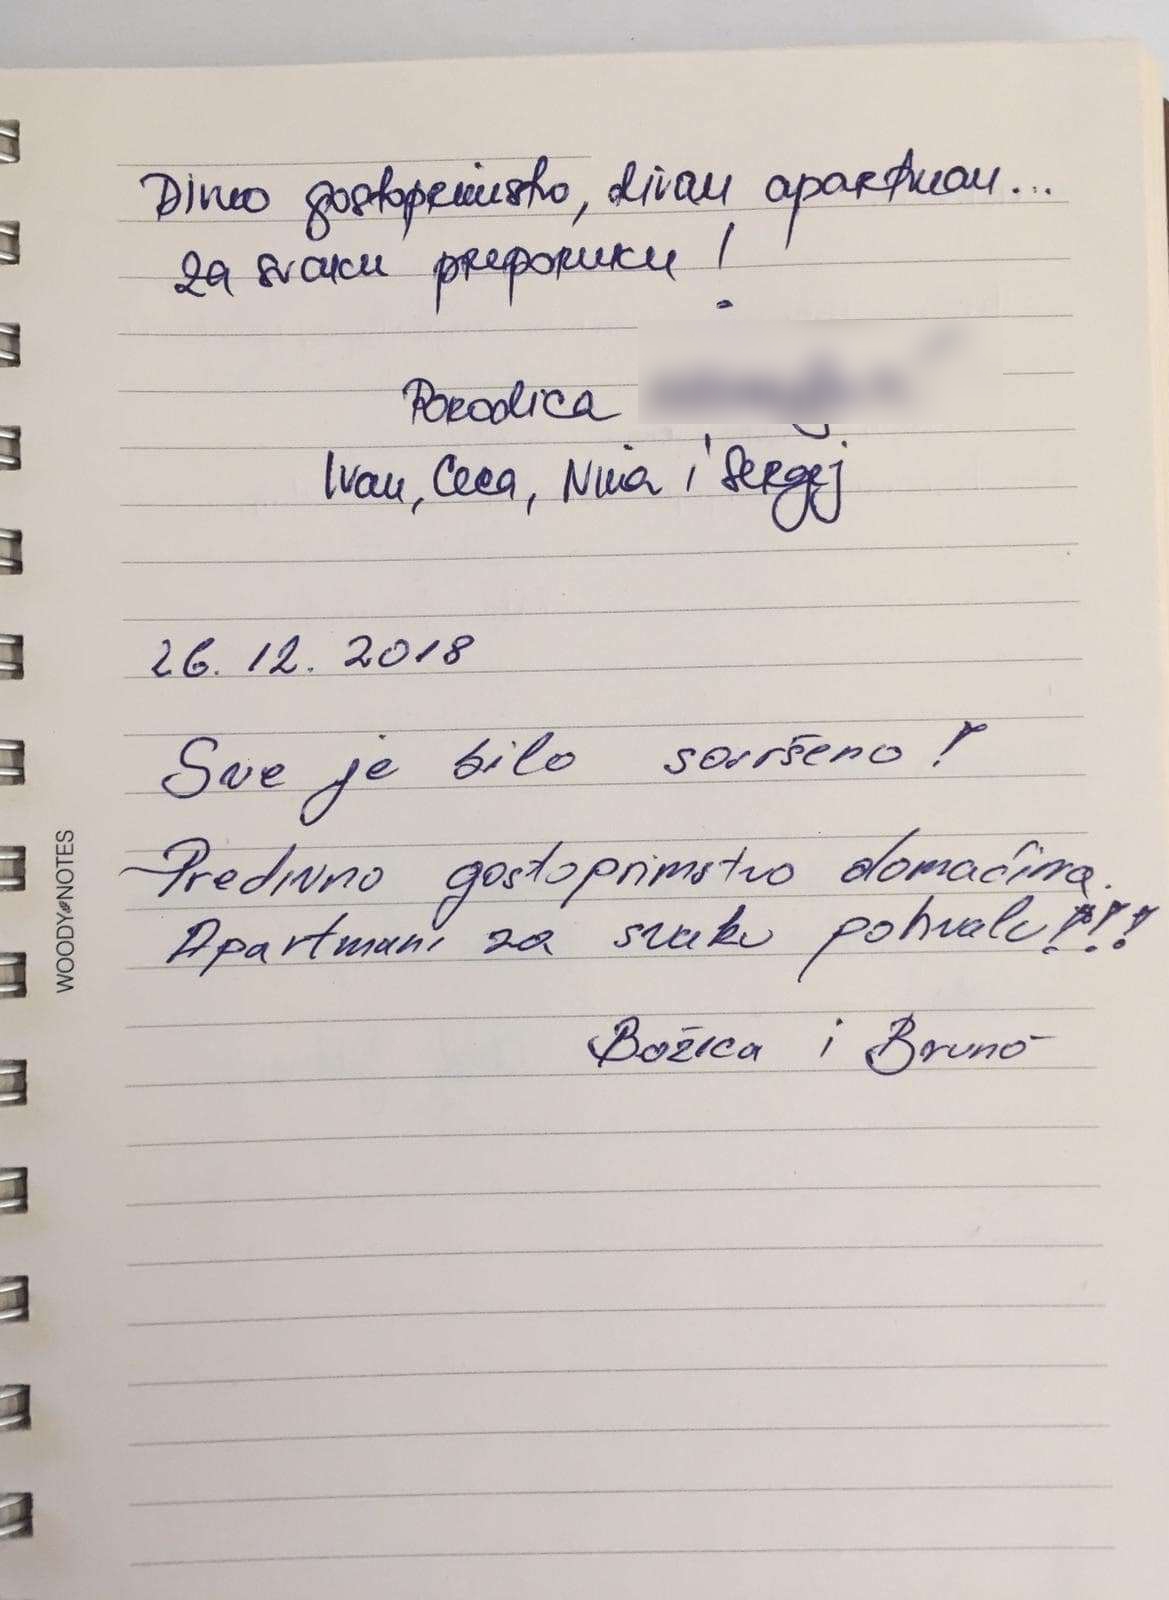 Divno gostoprimstvo, divan apartman...
za svaku preporuku!
Porodica
Ivan, Ceca, Nina i Sergej
26. 12. 2018
Sve je bilo savršeno!
Predivno gostoprimstvo domaćina.
Apartmani za svaku pohvalu!!!
Božica i Bruno
WOODY NOTES